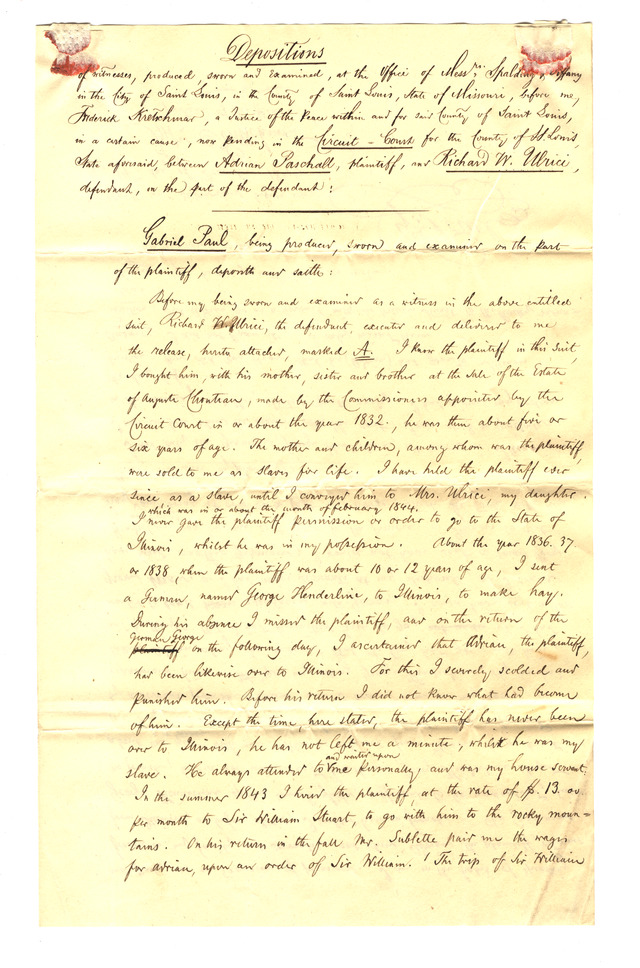 Depositions
of witnesses, produced, sworn and examined, at the Office of Messrs. Spalding & Tiffany
in the City of Saint Louis, in the County of Saint Louis, State of Missouri, before me,
Frederick Kretschmar, a Justice of the Peace within and for said County of Saint Louis,
in a certain cause, now pending in the Circuit-Court for the County of St. Louis,
State aforesaid, between Adrian Paschall, plaintiff, and Richard W. Ulrici,
defendant, on the part of the defendant:
Gabriel Paul, being produced, sworn and examined on the part
of the plaintiff, deposeth and saith:
Before my being sworn and examined as a witness in the above entitled
suit, Richard W. Ulrici, the defendant, executed and delivered to me
the release, hereto attached, marked A. I know the plaintiff in this suit,
I bought him, with his mother, sister and brother at the sale of the Estate
of Auguste Chouteau, made by the Commissioners appointed by the
Circuit Court in or about the year 1832., he was then about five or
six years of age. The mother and children, among whom was the plaintiff,
were sold to me as slaves for life. I have held the plaintiff ever
since as a slave, until I conveyed him to Mrs. Ulrici, my daughter.
which was in or about the month of February 1844.
I never gave the plaintiff permission or order to go to the State of
Illinois, whilst he was in my possession. About the year 1836. 37
or 1838, when the plaintiff was about 10 or 12 years of age, I sent
a German, named George Henderline, to Illinois, to make hay.
During his absence I missed the plaintiff, and on the return of the
German George
plaintiff on the following day, I ascertained that Adrian, the plaintiff,
had been likewise over to Illinois. For this I severely scolded and
punished him. Before his return I did not know what had become
of him. Except the time, here stated, the plaintiff has never been
over to Illinois, he has not left me a minute, whilst he was my
slave. He always attended to and waited upon me personally, and was my house servant.
In the summer 1843 I hired the plaintiff, at the rate of $. 13. 00
per month to Sir William Stuart, to go with him to the rocky moun=
tains. On his return in the fall Mr. Sublette paid me the wages
for Adrian, upon an order of Sir William. The trip of Sir William